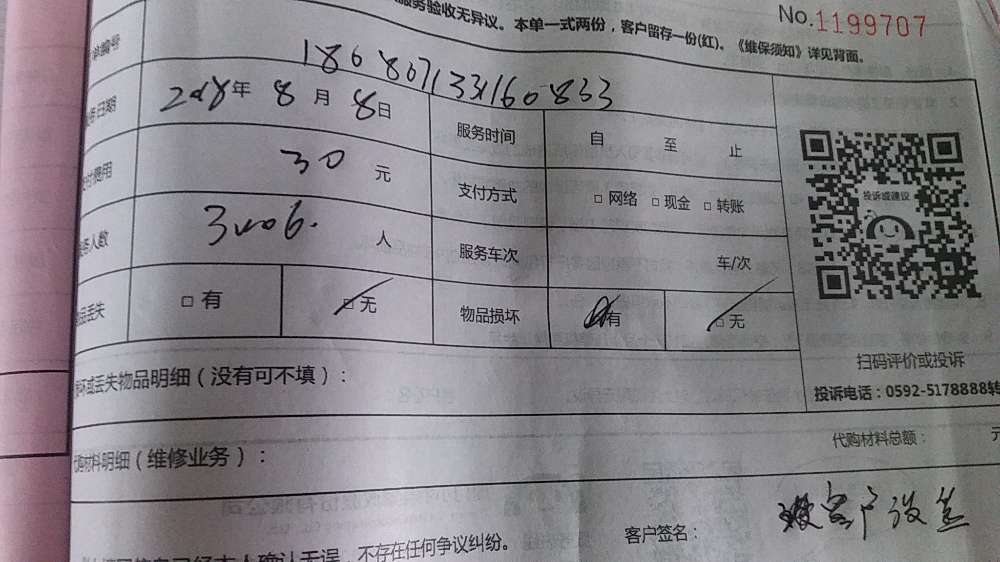 服务验收无异议。本单一式两份，客户留存一份(红)。《维保须知》详见背面。
No.1199707
编号
日期 2018年 8月 8日 服务时间 自 至 止
费用 30 元 支付方式 □ 网络 □ 现金 □ 转账
人数 人 服务车次 车/次
丢失 □ 有 □ 无 物品损坏 有 □ 无
投诉或建议
扫码评价或投诉
投诉电话：0592-5178888转
或丢失物品明细（没有可不填）：
代购材料明细（维修业务）：
代购材料总额： 元
客户签名：
已经本人确认无误，不存在任何争议纠纷。